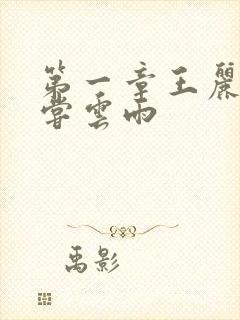 第一章王麗
嘗雲雨
禹影